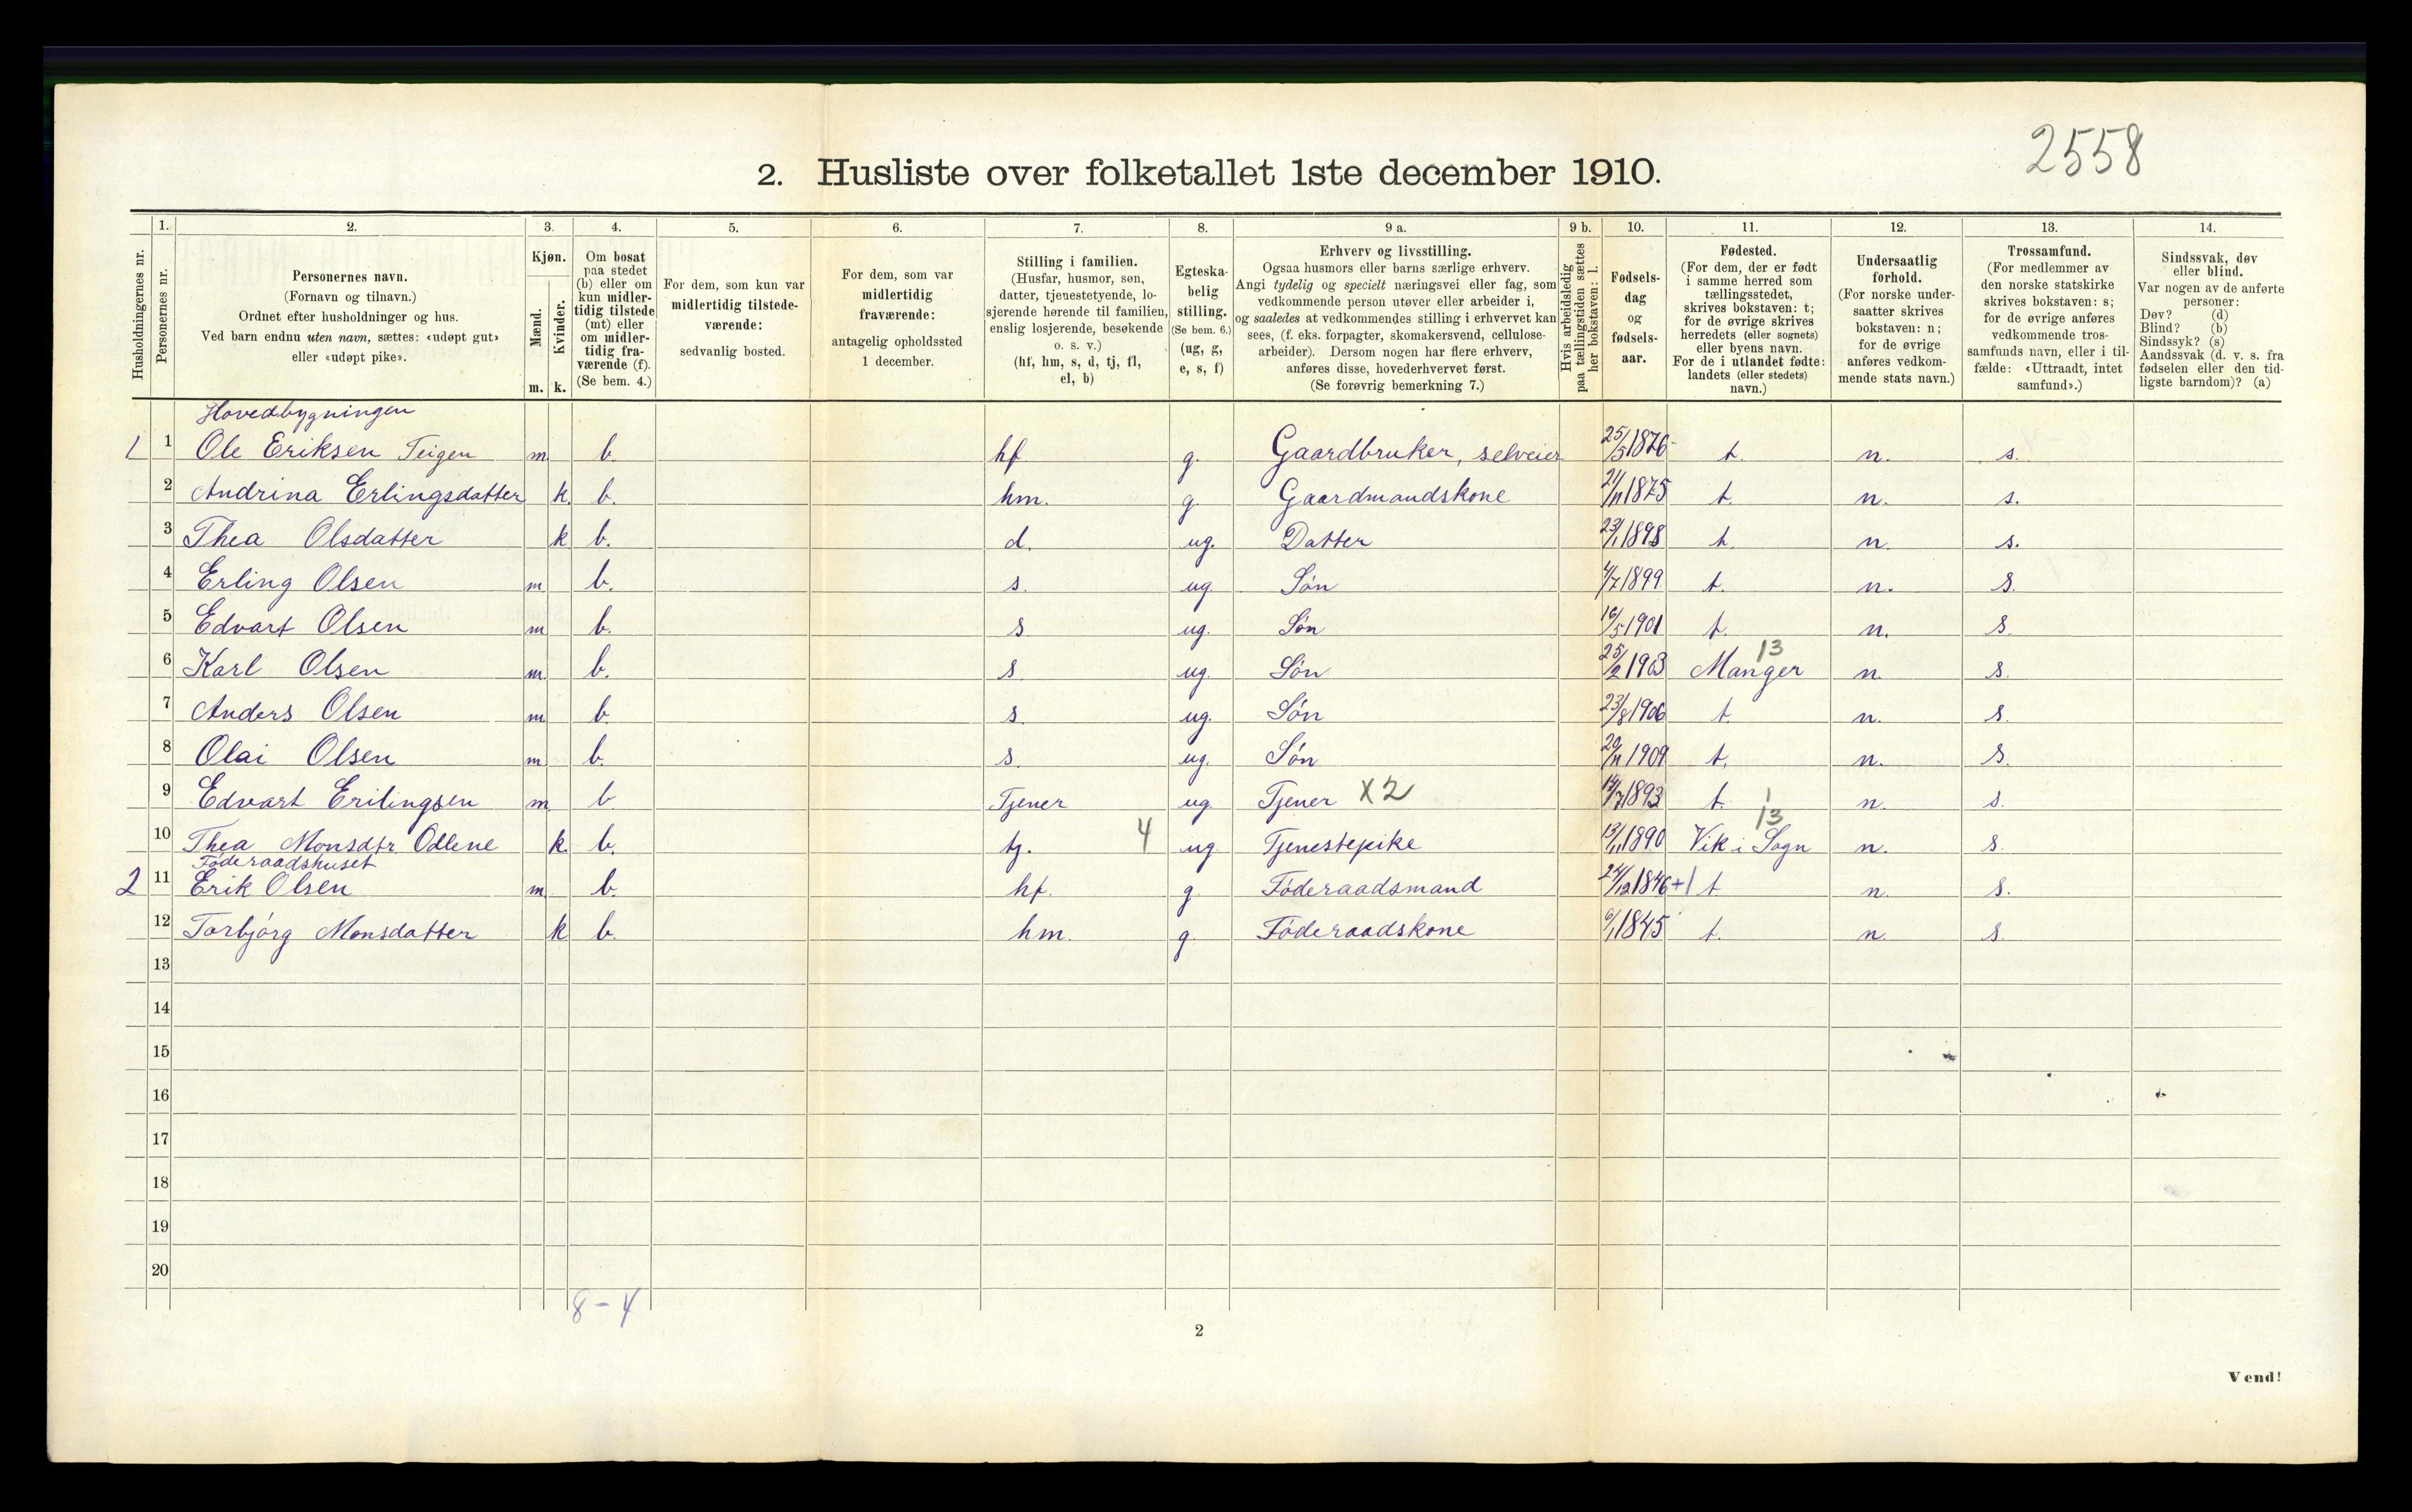 2558
2. Husliste over folketallet 1ste december 1910.
1. 2. 3. 4. 5. 6. 7. 8. 9 a. 9 b. 10. 11. 12. 13. 14.
Husholdningernes nr.
Personernes nr.
Personernes navn.
(Fornavn og tilnavn.)
Ordnet efter husholdninger og hus.
Ved barn endnu uten navn, sættes: «udøpt gut»
eller «udøpt pike».
Kjøn.
Mænd.
Kvinder.
m. k.
Om bosat
paa stedet
(b) eller om
kun midler-
tidig tilstede
(mt) eller
om midler-
tidig fra-
værende (f).
(Se bem. 4.)
For dem, som kun var
midlertidig tilstede-
værende:
sedvanlig bosted.
For dem, som var
midlertidig
fraværende:
antagelig opholdssted
1 december.
Stilling i familien.
(Husfar, husmor, søn,
datter, tjenestetyende, lo-
sjerende hørende til familien,
enslig losjerende, besøkende
o. s. v.)
(hf, hm, s, d, tj, fl,
el, b)
Egteska-
belig
stilling.
(Se bem. 6.)
(ug, g,
e, s, f)
Erhverv og livsstilling.
Ogsaa husmors eller barns særlige erhverv.
Angi tydelig og specielt næringsvei eller fag, som
vedkommende person utøver eller arbeider i,
og saaledes at vedkommendes stilling i erhvervet kan
sees, (f. eks. forpagter, skomakersvend, cellulose-
arbeider). Dersom nogen har flere erhverv,
anføres disse, hovederhvervet først.
(Se forøvrig bemerkning 7.)
Hvis arbeidsledig
paa tællingstiden sættes
her bokstaven: l.
Fødsels-
dag
og
fødsels-
aar.
Fødested.
(For dem, der er født
i samme herred som
tællingsstedet,
skrives bokstaven: t;
for de øvrige skrives
herredets (eller sognets)
eller byens navn.
For de i utlandet fødte:
landets (eller stedets)
navn.)
Undersaatlig
forhold.
(For norske under-
saatter skrives
bokstaven: n;
for de øvrige
anføres vedkom-
mende stats navn.)
Trossamfund.
(For medlemmer av
den norske statskirke
skrives bokstaven: s;
for de øvrige anføres
vedkommende tros-
samfunds navn, eller i til-
fælde: «Uttraadt, intet
samfund».)
Sindssvak, døv
eller blind.
Var nogen av de anførte
personer:
Døv? (d)
Blind? (b)
Sindssyk? (s)
Aandssvak (d. v. s. fra
fødselen eller den tid-
ligste barndom)? (a)
Hovedbygningen
1 1 Ole Eriksen Teigen m b. hf g. Gaardbruker, selveier 25/5 1876 t. n. s.
2 Andrina Erlingsdatter k. b. hm. g. Gaardmandskone 21/11 1875 t. n. s.
3 Thea Olsdatter k b. d. ug. Datter 23/1 1898 t. n. s.
4 Erling Olsen m b. s. ug. Søn 4/7 1899 t. n. s.
5 Edvart Olsen m b. s ug. Søn 16/5 1901 t. n. s.
13
6 Karl Olsen m b. s ug. Søn 25/2 1903 Manger n. s.
7 Anders Olsen m b. s. ug. Søn 23/8 1906 t. n. s.
8 Olai Olsen m b. s. ug. Søn 20/11 1909 t. n. s.
9 Edvart Erilingsen m b Tjener ug. Tjener X2 /7 1893 t. n. s.
1
13
10 Thea Monsdtr Odlene k. b. tj. 4 ug. Tjenestepike 13/1 1890 Vik i Sogn n. s.
Føderaadshuset
2 11 Erik Olsen m. b. hf. g. Føderaadsmand 24/12 1846 +1 t n. s.
12 Torbjørg Monsdatter k b. hm. g. Føderaadskone 6/1 1845 t. n. s.
13
14
15
16
17
18
19
20
8 - 4
2
Vend!